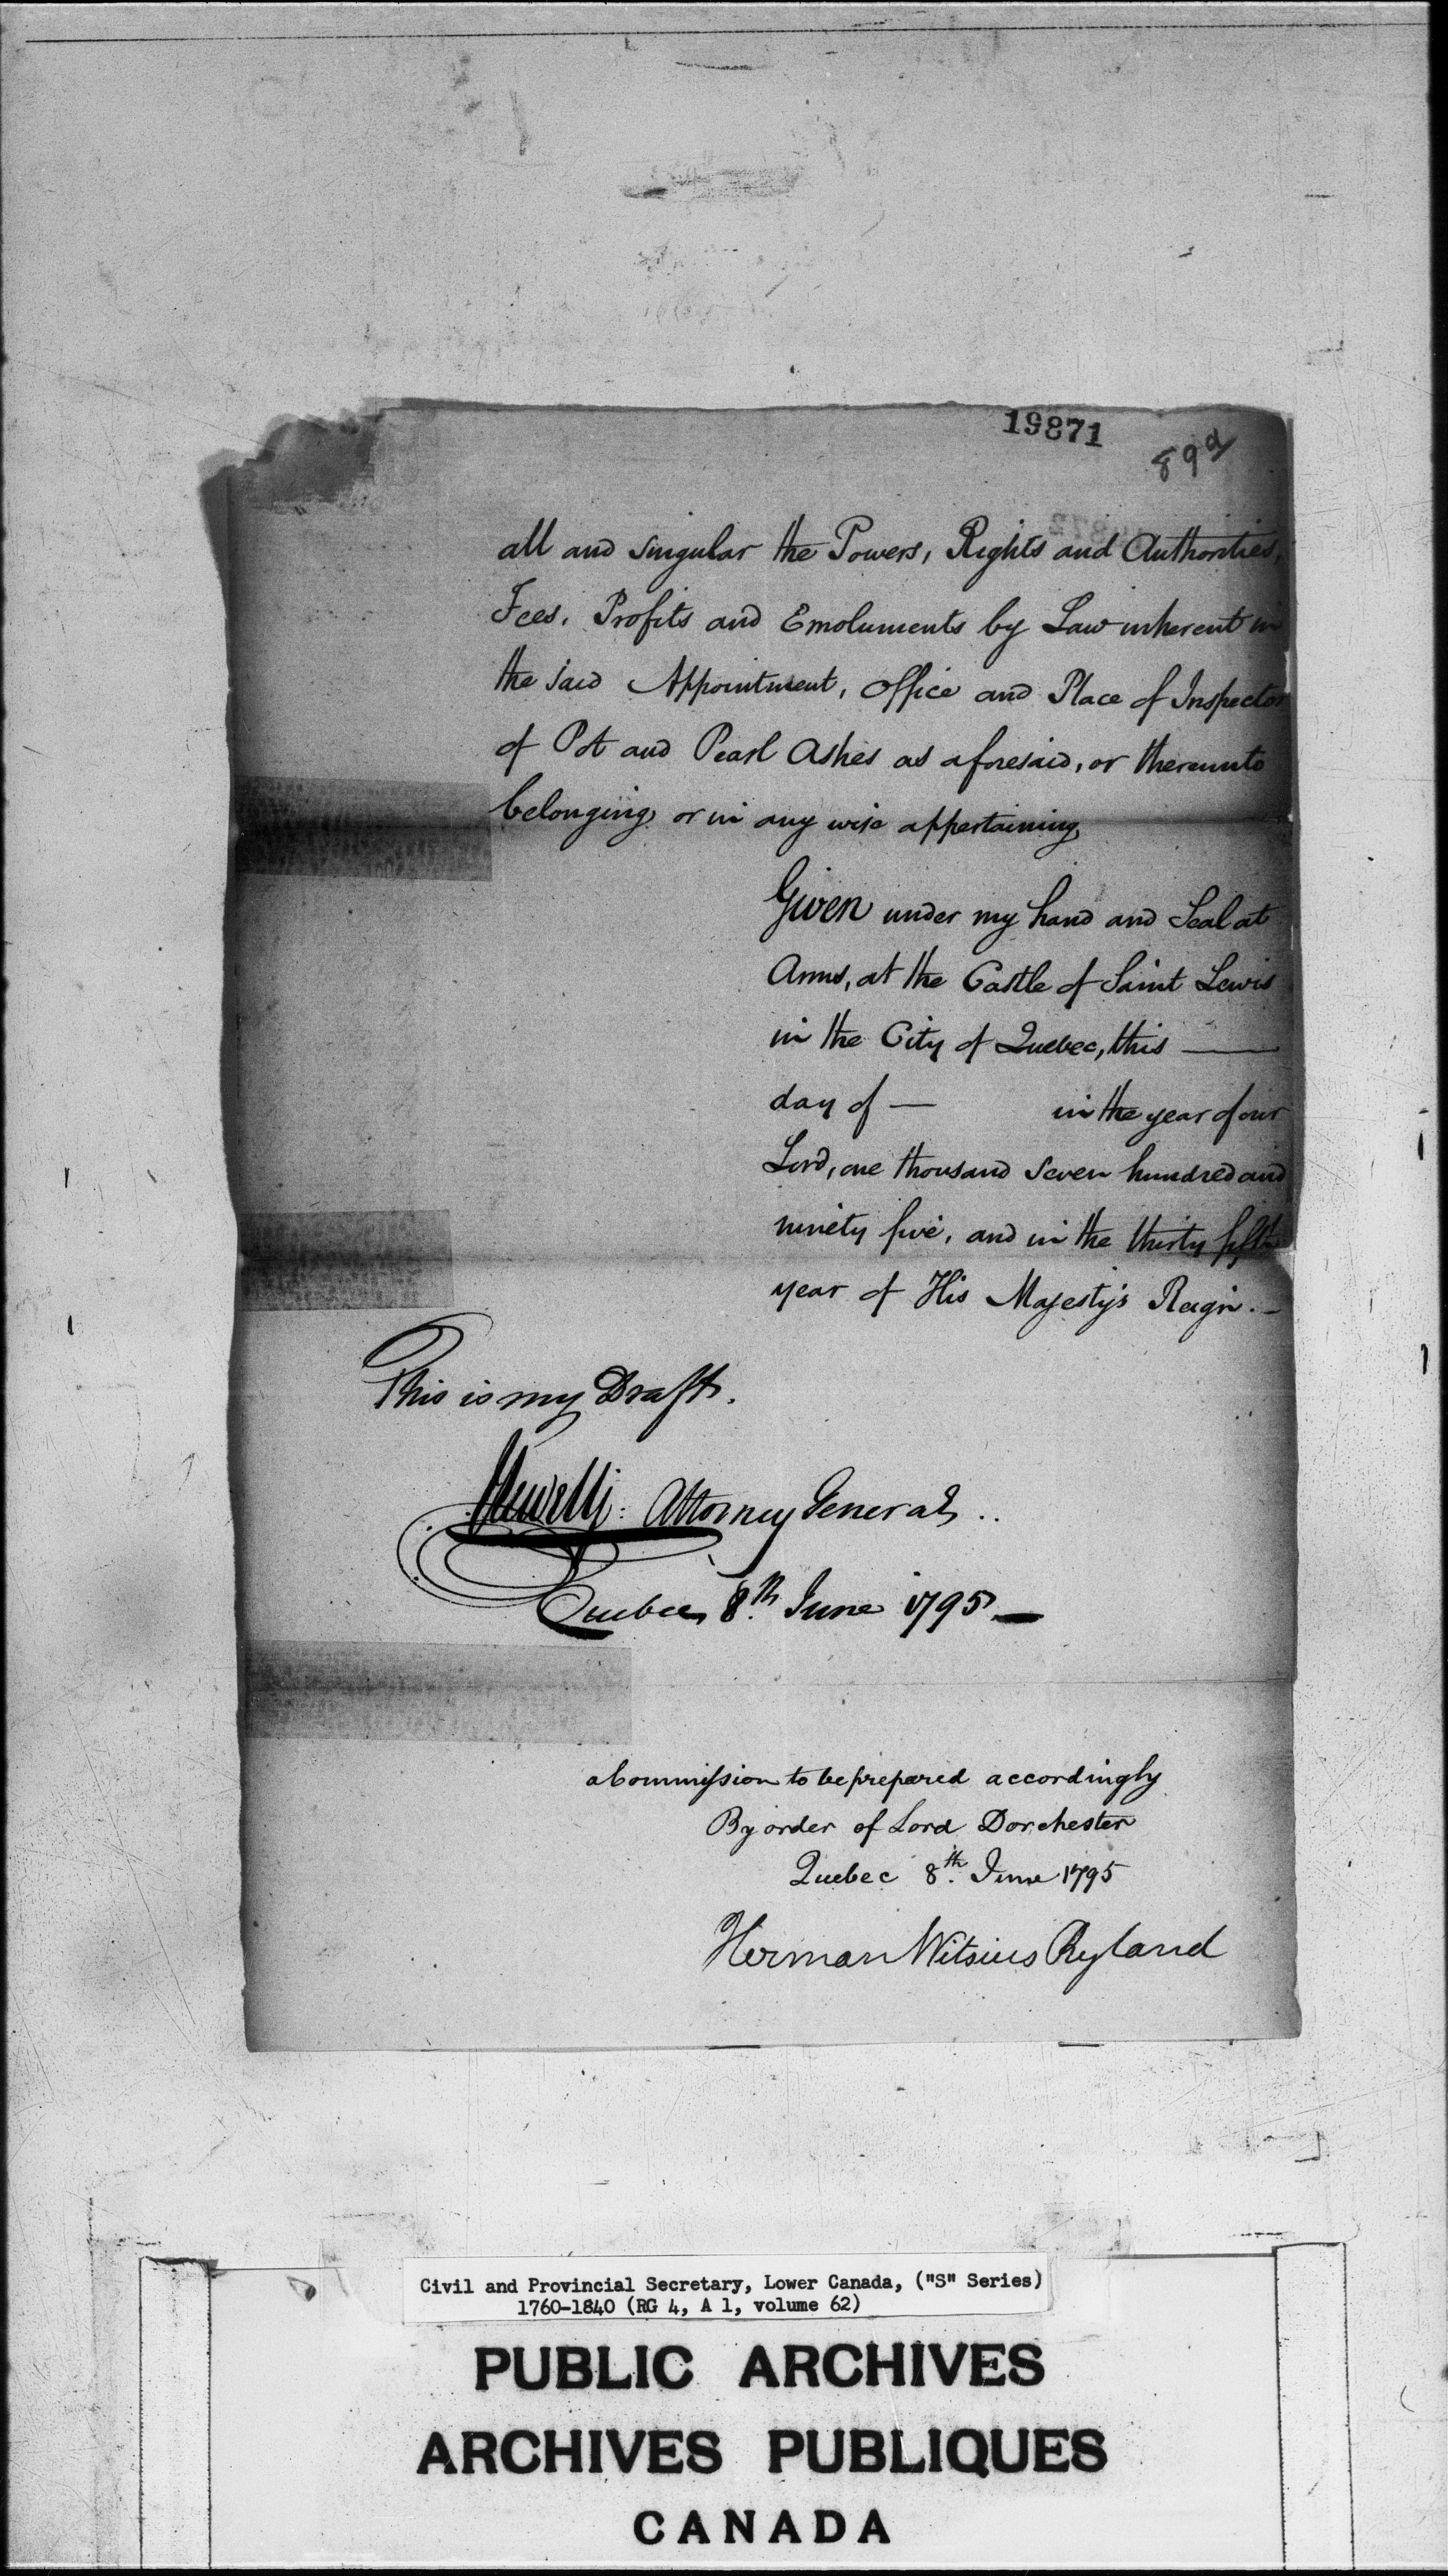 19871
89a
all and singular the Powers, Rights and Authorities,
Fees, Profits and Emoluments by Law inherent in
the said Appointment, Office and Place of Inspector
of Pot and Pearl Ashes as aforesaid, or thereunto
belonging or in any wise appertaining,
Given under my hand and Seal at
Arms, at the Castle of Saint Lewis
in the City of Quebec, this —
day of — in the year of our
Lord, one thousand seven hundred and
ninety five, and in the thirty fifth
year of His Majesty's Reign. —
This is my Draft.
JSewell: Attorney General..
Quebec 8th June 1795 —
a Commission to be prepared accordingly
By order of Lord Dorchester
Quebec 8th June 1795
Herman Witsius Ryland
Civil and Provincial Secretary, Lower Canada, ("S" Series)
1760-1840 (RG 4, A 1, volume 62)
PUBLIC ARCHIVES
ARCHIVES PUBLIQUES
CANADA